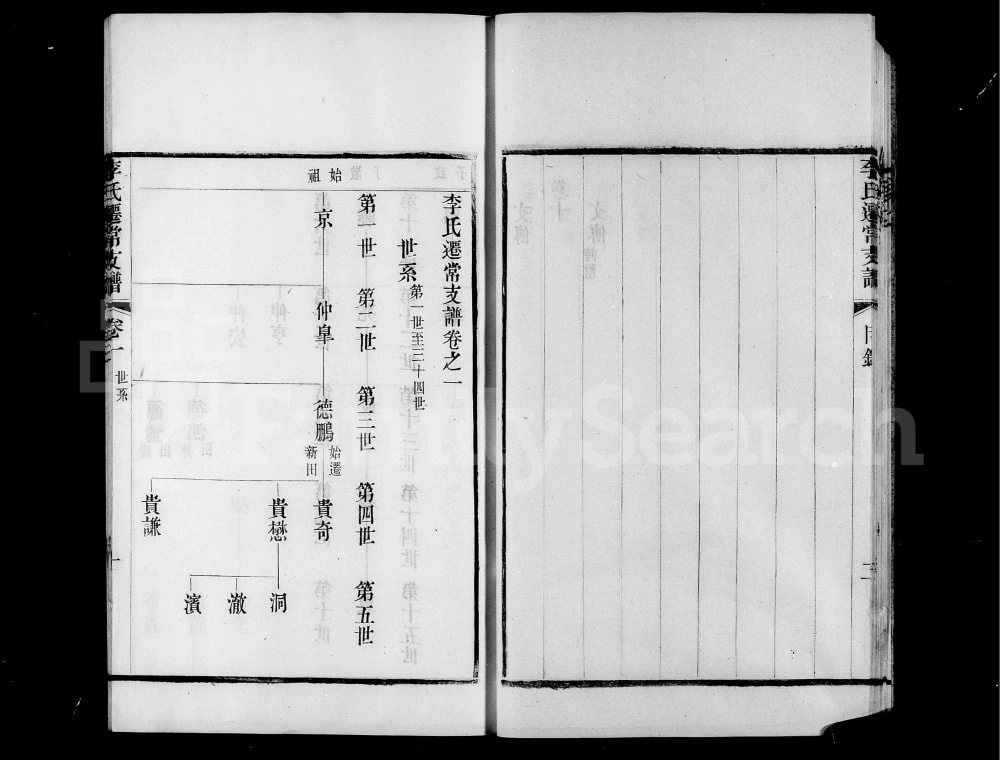 李氏遷常支譜
目錄
二
李氏遷常支譜卷之一
世系 第一世至三十四世
第一世 第二世 第三世 第四世 第五世
始祖
京 仲皐 德鵬 始遷新田 貴奇
貴懋 洞
澈
濱
貴謙
李氏遷常支譜
卷一 世系
一
FamilySearch